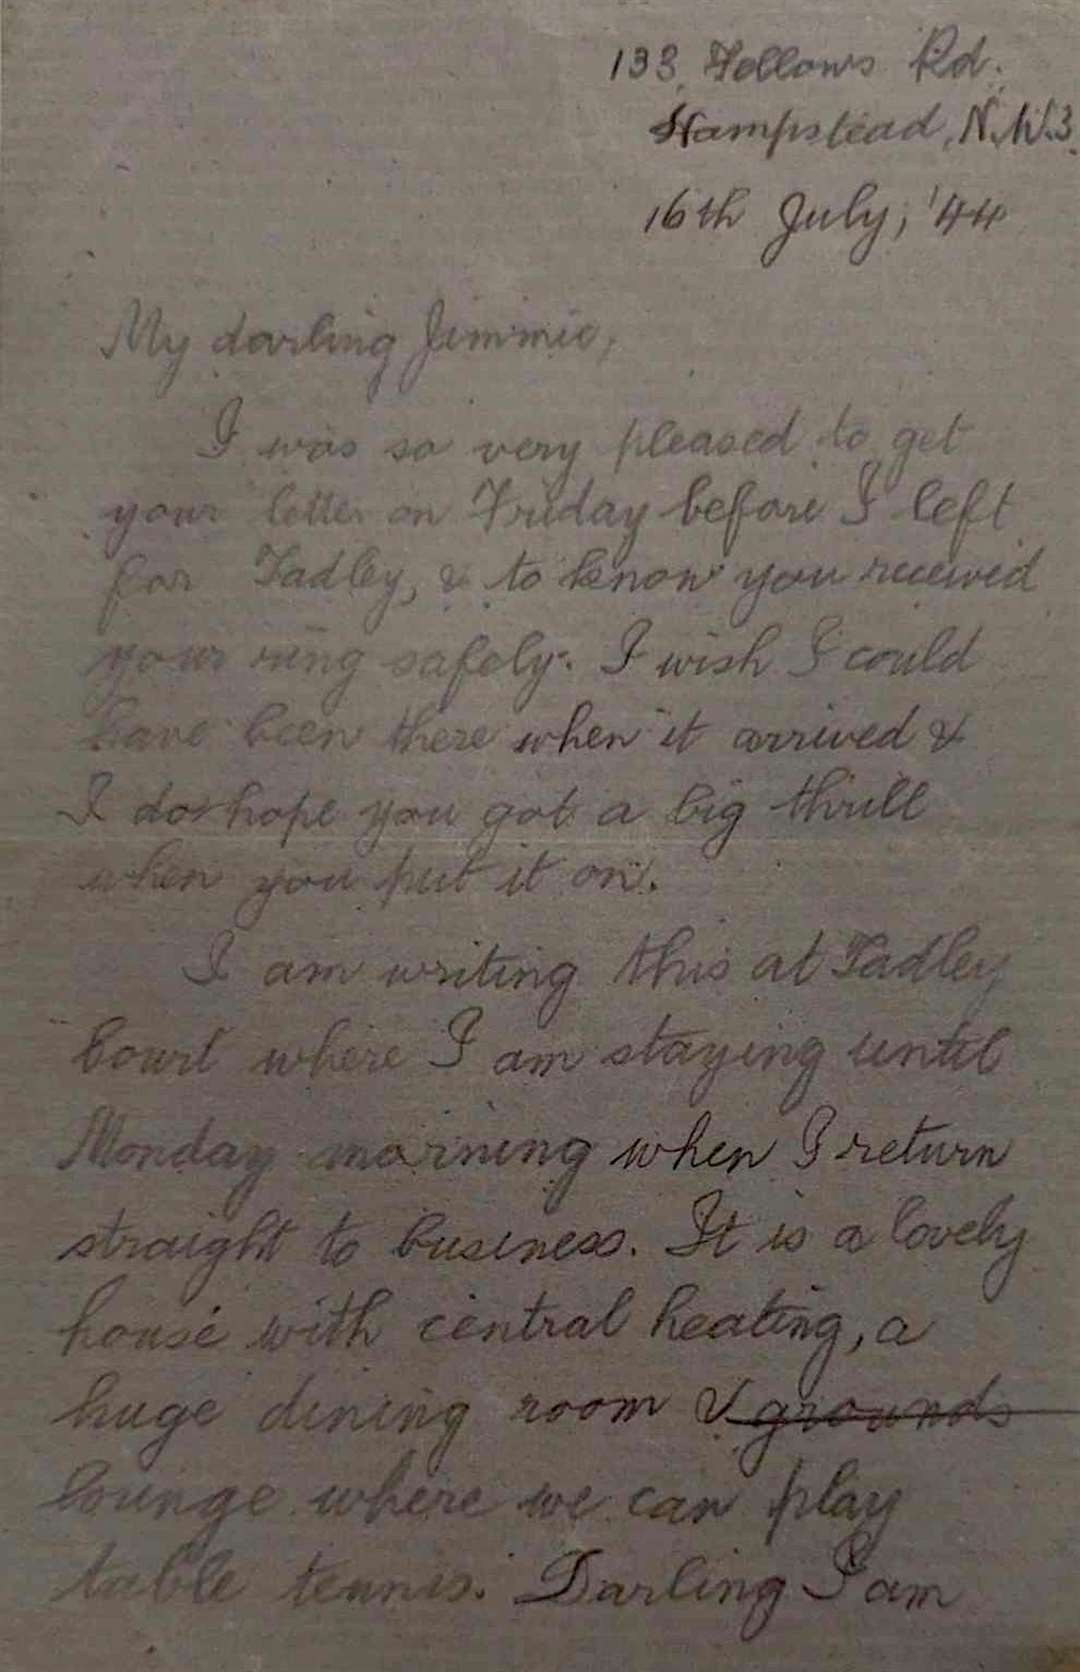 133, Fellows Rd.
Hampstead, N.W.3.
16th July, '44
My darling Jimmie,
I was so very pleased to get
your letter on Friday before I left
for Tadley, & to know you received
your ring safely. I wish I could
have been there when it arrived &
I do hope you got a big thrill
when you put it on.
I am writing this at Tadley
Court where I am staying until
Monday morning when I return
straight to business. It is a lovely
house with central heating, a
huge dining room & grounds
lounge where we can play
table tennis. Darling I am